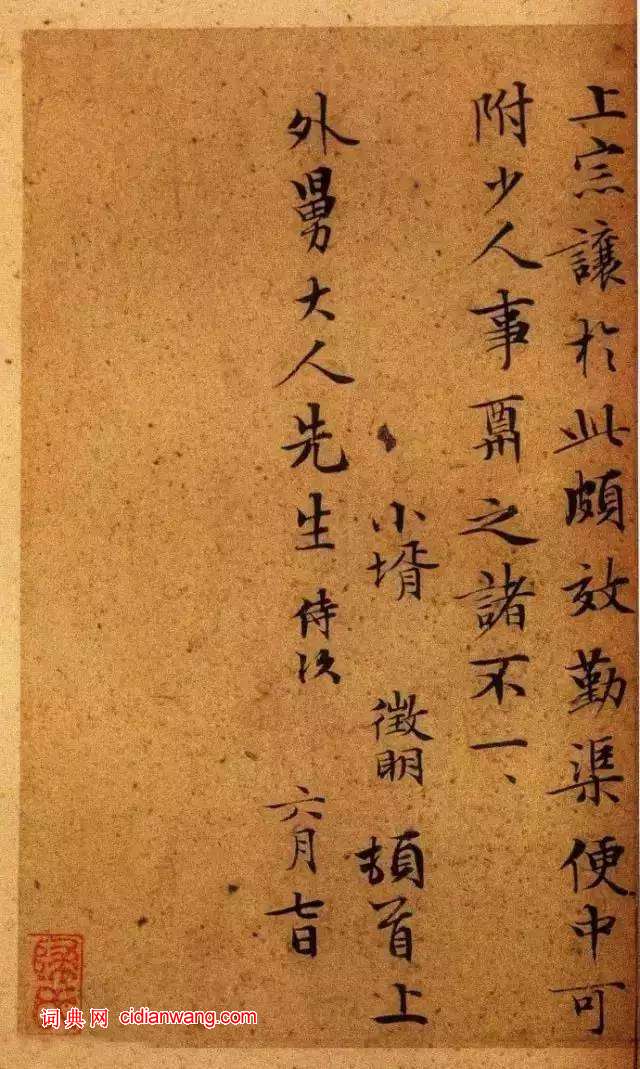 上宗讓於此頗效勤渠便中可
附少人事之諸不一、
小壻 徵明 頓首上
外舅大人先生 侍次
六月七日
词典网 cidianwang.com